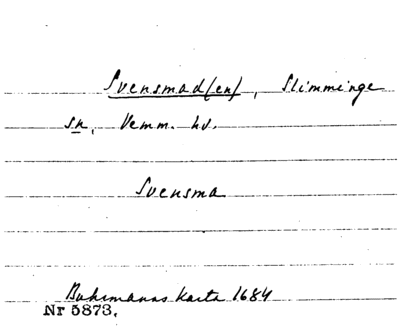 Svensmad(en), Slimminge
sn, Vemm. hd.
Svensma
Buhrmanns karta 1684
Nr 5873.